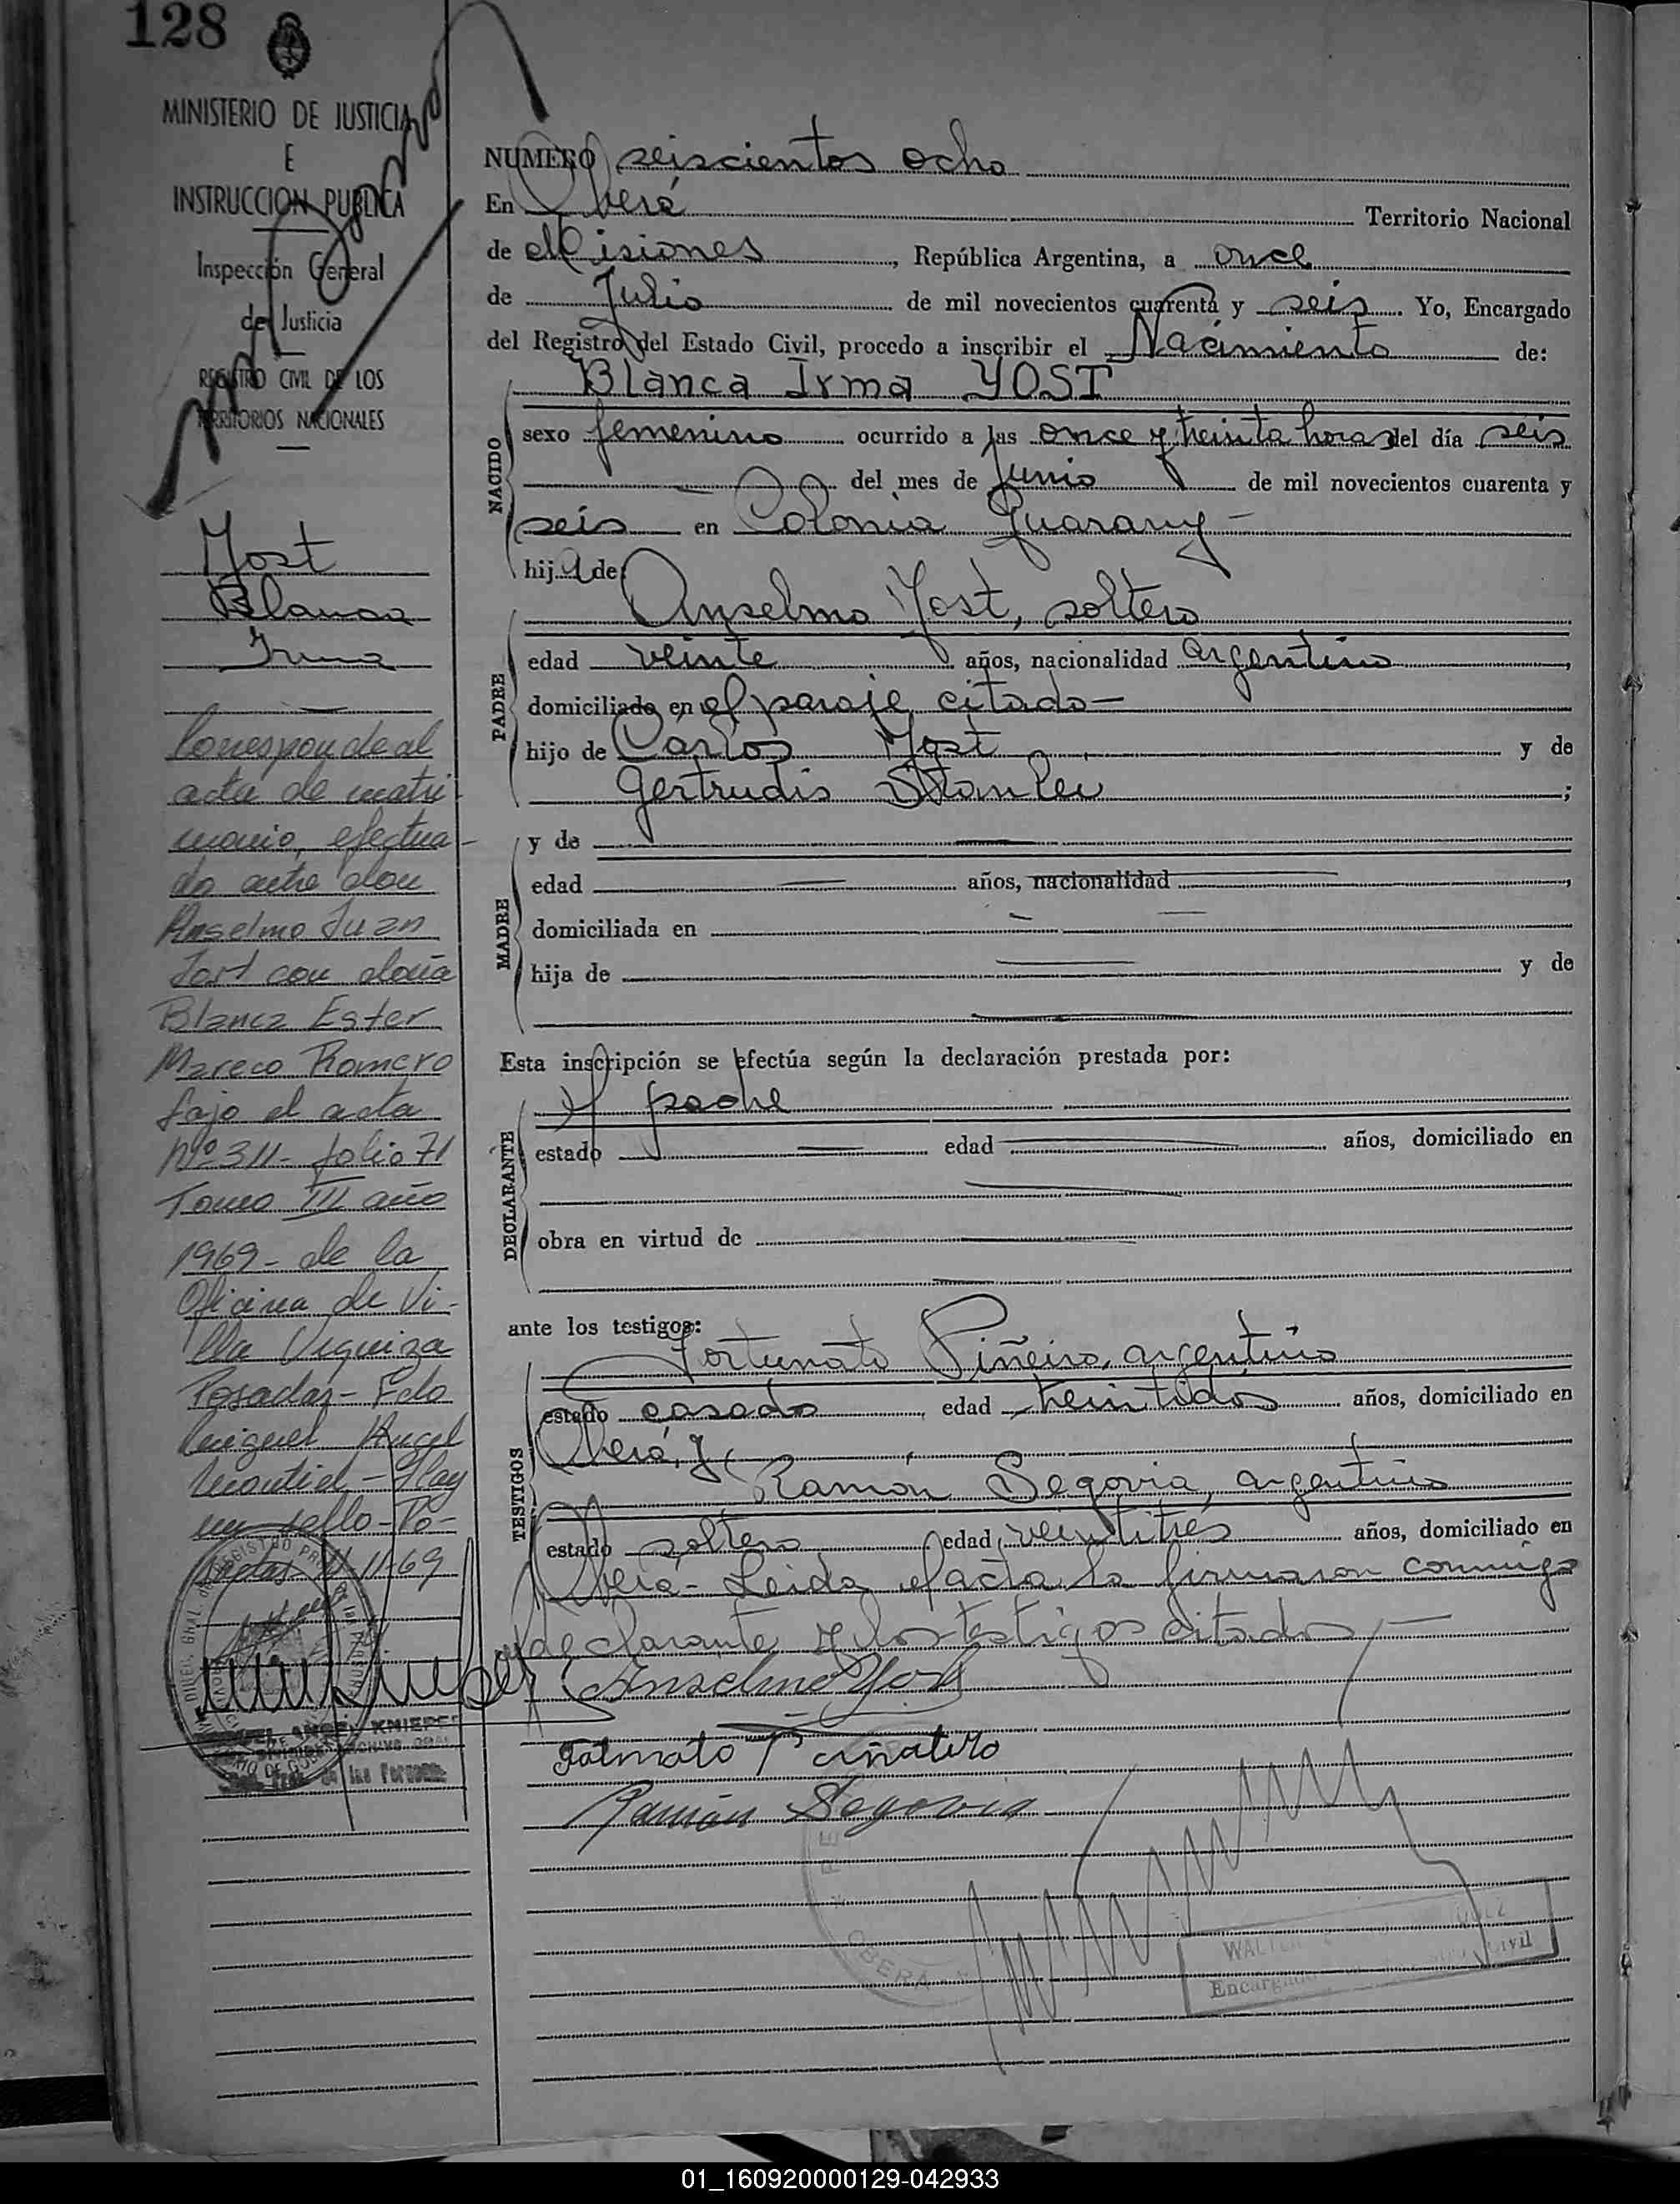 128
MINISTERIO DE JUSTICIA
E
INSTRUCCION PUBLICA
Inspección General
de Justicia
REGISTRO CIVIL DE LOS
TERRITORIOS NACIONALES
Yost
Blanca
Irma
Corresponde al
acta de matri-
monio, efectua-
do entre don
Anselmo Juan
Jost con doña
Blanca Ester
Mareco Romero
bajo el acta
Nº 311- folio 71
Tomo III año
1969- de la
Oficina de Vi-
lla Urquiza
Posadas- Fdo
Miguel Angel
Montiel- Hay
un sello- Po-
sadas 11-69
MIGUEL ANGEL KNIEPER
NUMERO seiscientos ocho
En Oberá Territorio Nacional
de Misiones, República Argentina, a once
de Julio de mil novecientos cuarenta y seis. Yo, Encargado
del Registro del Estado Civil, procedo a inscribir el Nacimiento de:
NACIDO
Blanca Irma YOST
sexo femenino ocurrido a las once y treinta horas del día seis
del mes de Junio de mil novecientos cuarenta y
seis en Colonia Guarany-
hija de:
PADRE
Anselmo Yost, soltero
edad veinte años, nacionalidad argentino,
domiciliado en el paraje citado-
hijo de Carlos Yost y de
Gertrudis ;
MADRE
y de
edad años, nacionalidad ,
domiciliada en
hija de y de
Esta inscripción se efectúa según la declaración prestada por:
DECLARANTE
El padre
estado edad años, domiciliado en
obra en virtud de
ante los testigos:
TESTIGOS
Fortunato Piñeiro, argentino
estado casado, edad treintidos años, domiciliado en
Oberá, y
Ramón Segovia, argentino
estado soltero edad veintitrés años, domiciliado en
Oberá- Leida el acta la firmaron conmigo
el declarante y los testigos citados,-
Anselmo Yost
Ramón Segovia
OBERA
Encargado Civil
01_160920000129-042933